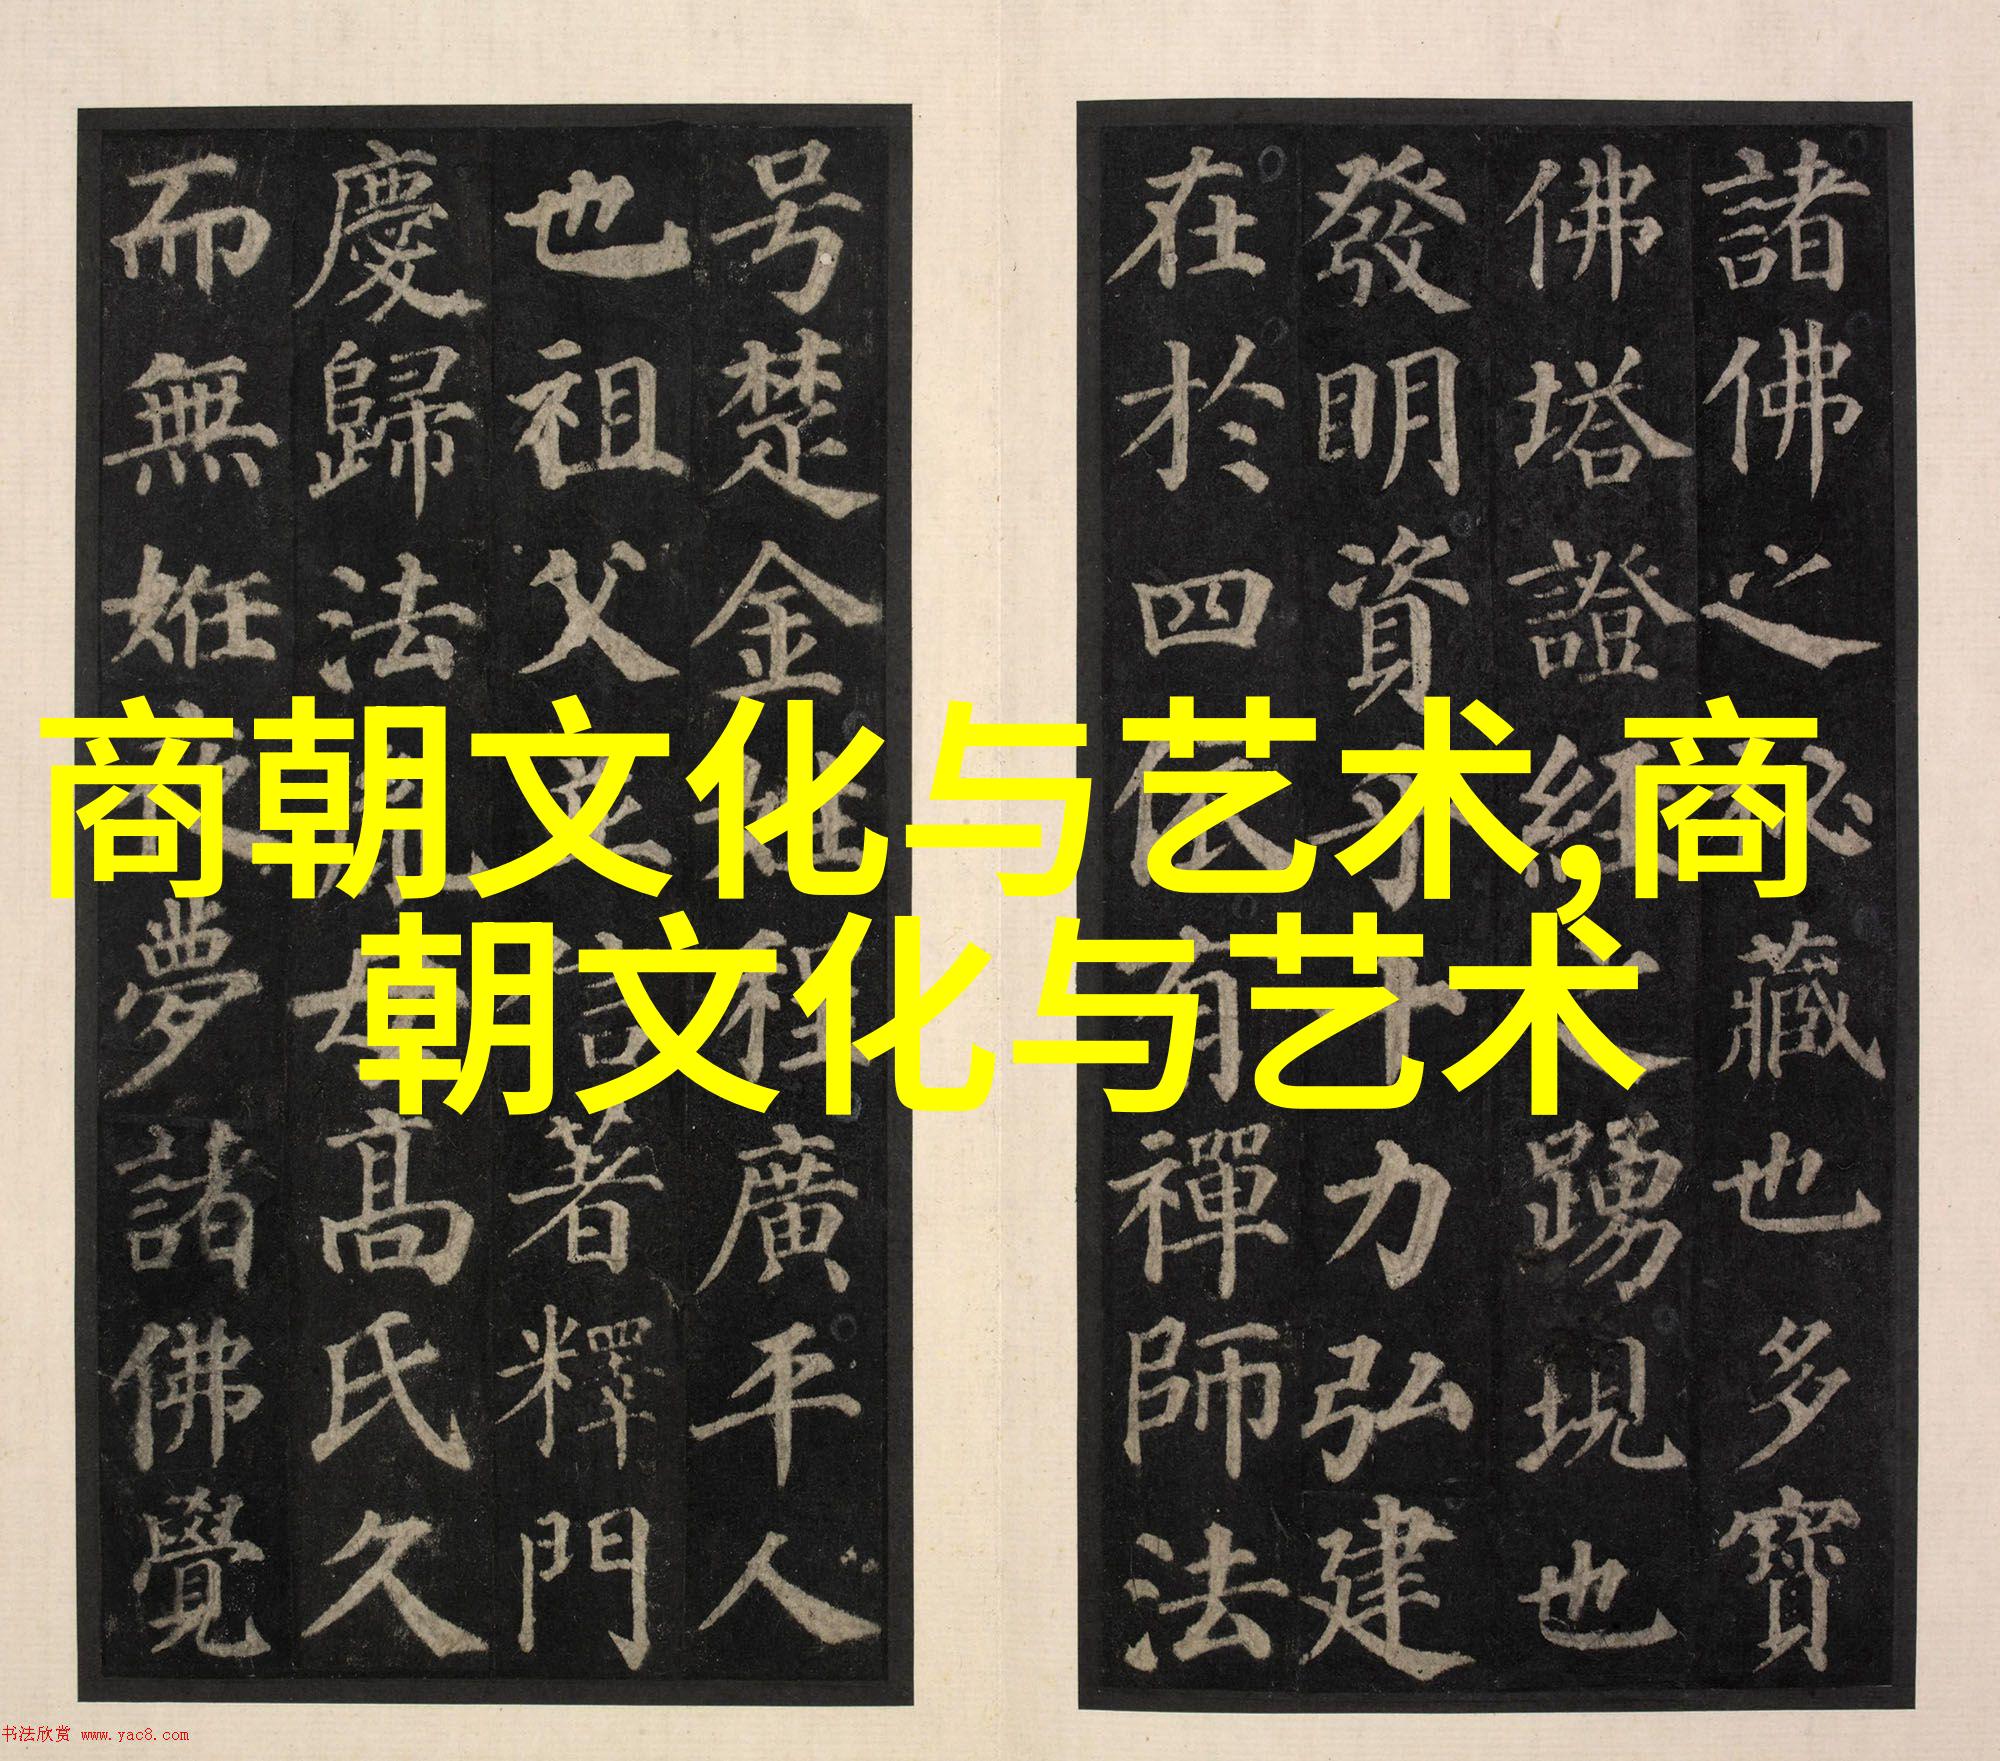 諸佛之秘藏也多寶
佛塔證經之踴現也
發明資乎十力弘建
在於四依有禪師法
号楚金姓程廣平人
也祖父並信著釋門
慶歸法胤母高氏久
而無姙夜夢諸佛覺
商朝文化与艺术,商
朝文化与艺术
书法欣赏 www.yac8.com